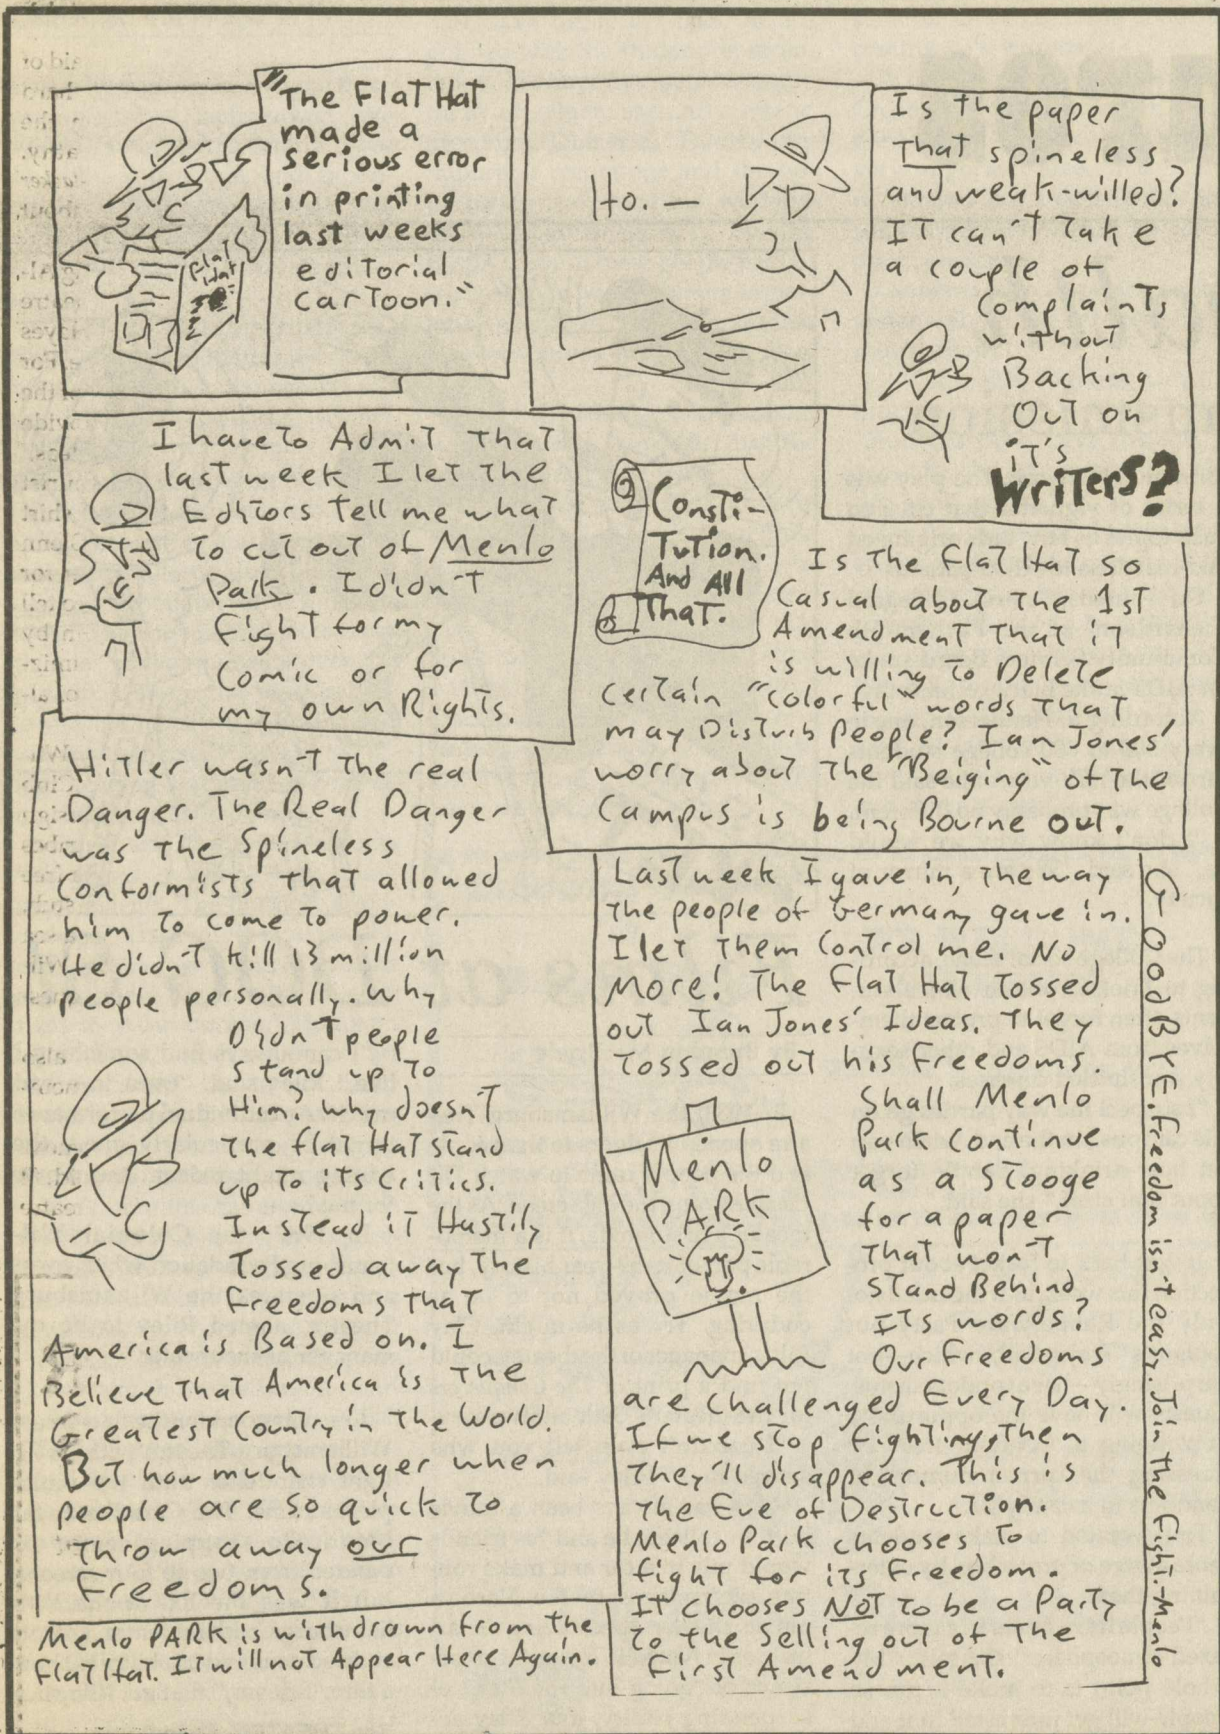 "The Flat Hat
made a
serious error
in printing
last weeks
editorial
cartoon."
Flat
Hat
Ho. —
Is the paper
That spineless
and weak-willed?
IT can't Take
a couple of
Complaints
without
Backing
Out on
iT's
Writers?
I have To Admit That
last week I let The
Editors Tell me what
To cut out of Menlo
Park. I didn't
Fight for my
Comic or for
my own Rights.
Consti-
Tution.
And All
That.
Is The Flat Hat so
Casual about The 1st
Amendment That iT
is willing To Delete
certain "colorful" words That
may Disturb People? Ian Jones'
worry about The "Beiging" of The
Campus is being Bourne out.
Hitler wasn't The real
Danger. The Real Danger
was The Spineless
Conformists That allowed
him To come To power.
He didn't kill 13 million
people personally. Why
Didn't people
stand up To
Him? Why doesn't
The flat Hat stand
up To its Critics.
Instead iT Hastily
Tossed away The
Freedoms That
America is Based on. I
Believe That America is The
Greatest Country in The World.
But how much longer when
people are so quick To
Throw away our
Freedoms.
Menlo PARK is withdrawn from The
Flat Hat. IT will not Appear Here Again.
Last week I gave in, The way
The people of Germany gave in.
I let Them Control me. No
More! The Flat Hat Tossed
out Ian Jones' Ideas. They
Tossed out his Freedoms.
Shall Menlo
Park continue
as a Stooge
for a paper
That won't
Stand Behind
ITs words?
Our Freedoms
are challenged Every Day.
If we stop fighting, Then
They'll disappear. This is
The Eve of Destruction.
Menlo Park chooses To
fight for iTs Freedom.
IT chooses NOT To be a Party
To the Selling out of The
First Amendment.
Menlo
PARK
GOodBYE. Freedom isn't easy. Join the fight. -Menlo